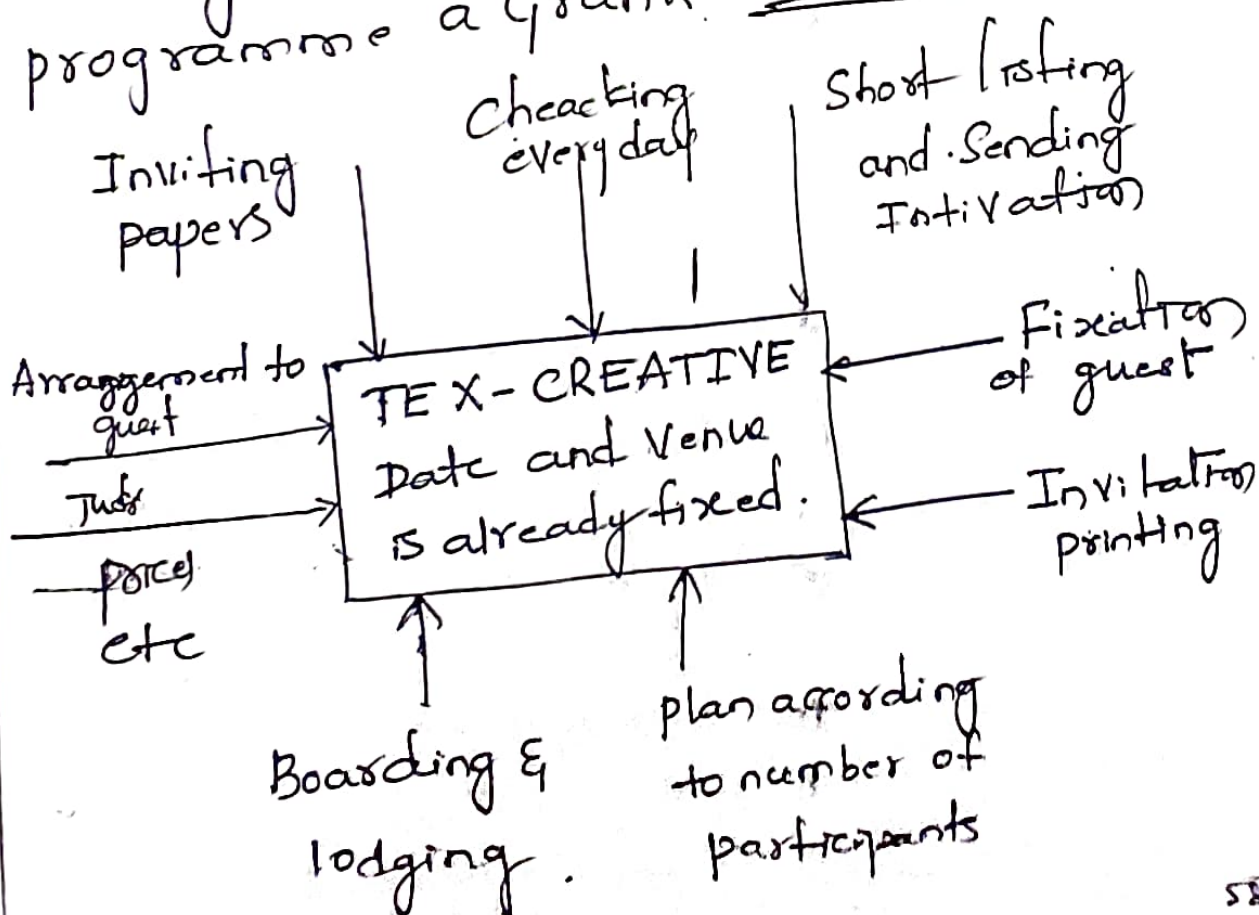 programme a
Inviting
papers
Cheacking
everyday
Short listing
and Sending
Intivation
Arrangement to
guest
Fixation
of guest
TEX-CREATIVE
Date and Venue
is already fixed.
Invitation
printing
etc
Boarding &
lodging.
plan according
to number of
participants